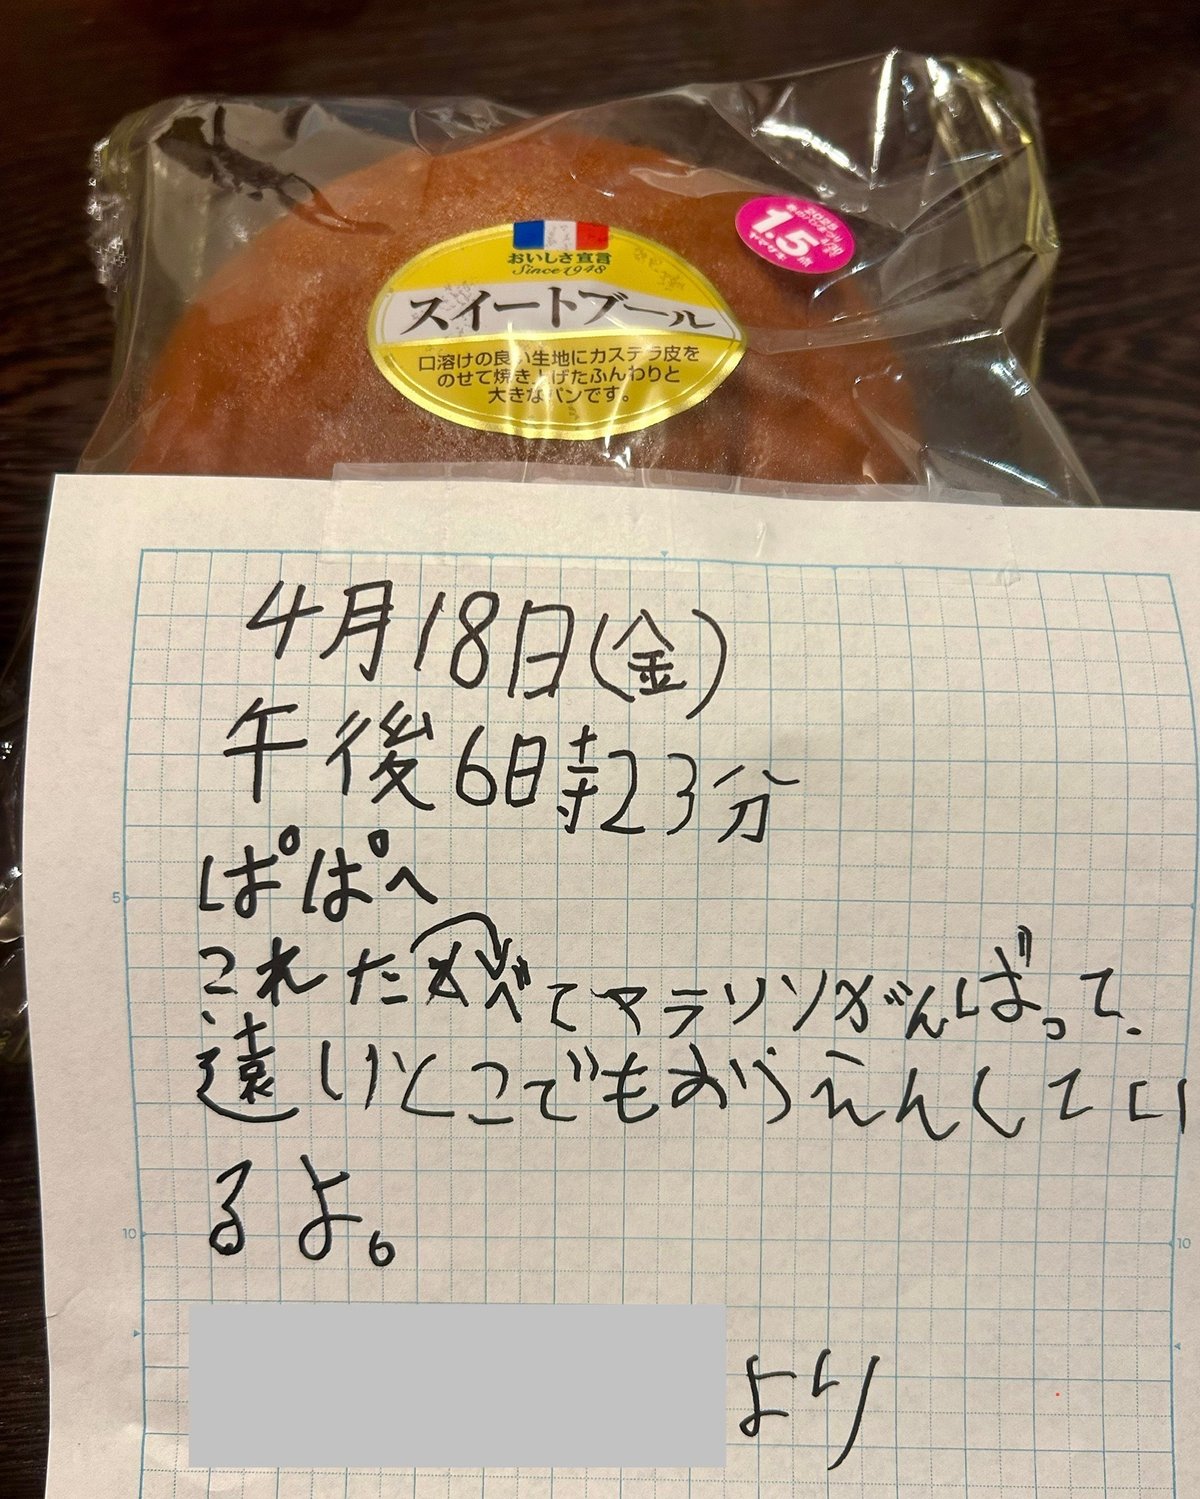 おいしさ宣言
Since 1948
スイートブール
口溶けの良い生地にカステラ皮を
のせて焼き上げたふんわりと
大きなパンです。
2025
1.5
点
4月18日(金)
午後6時23分
ぱぱへ
これたべてマラソンがんばって、
遠いとこでもおうえんしてい
るよ。
より
5
10
10